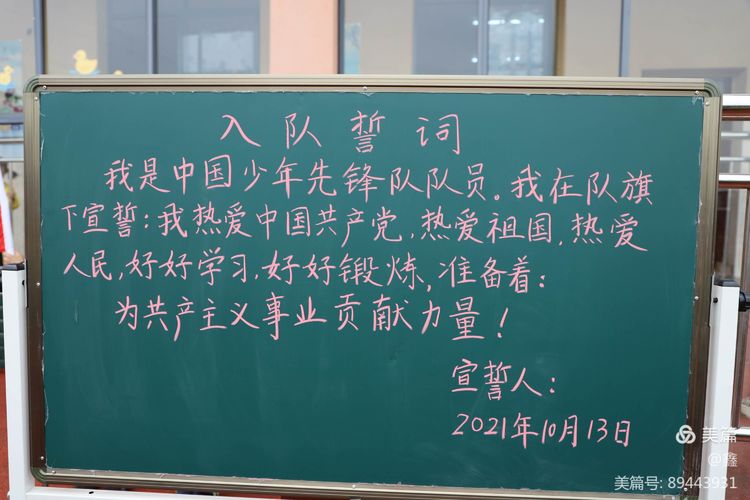 入队誓词
我是中国少年先锋队队员。我在队旗
下宣誓:我热爱中国共产党,热爱祖国,热爱
人民,好好学习,好好锻炼,准备着:
为共产主义事业贡献力量!
宣誓人:
2021年10月13日
美篇
@鑫
美篇号: 89443931